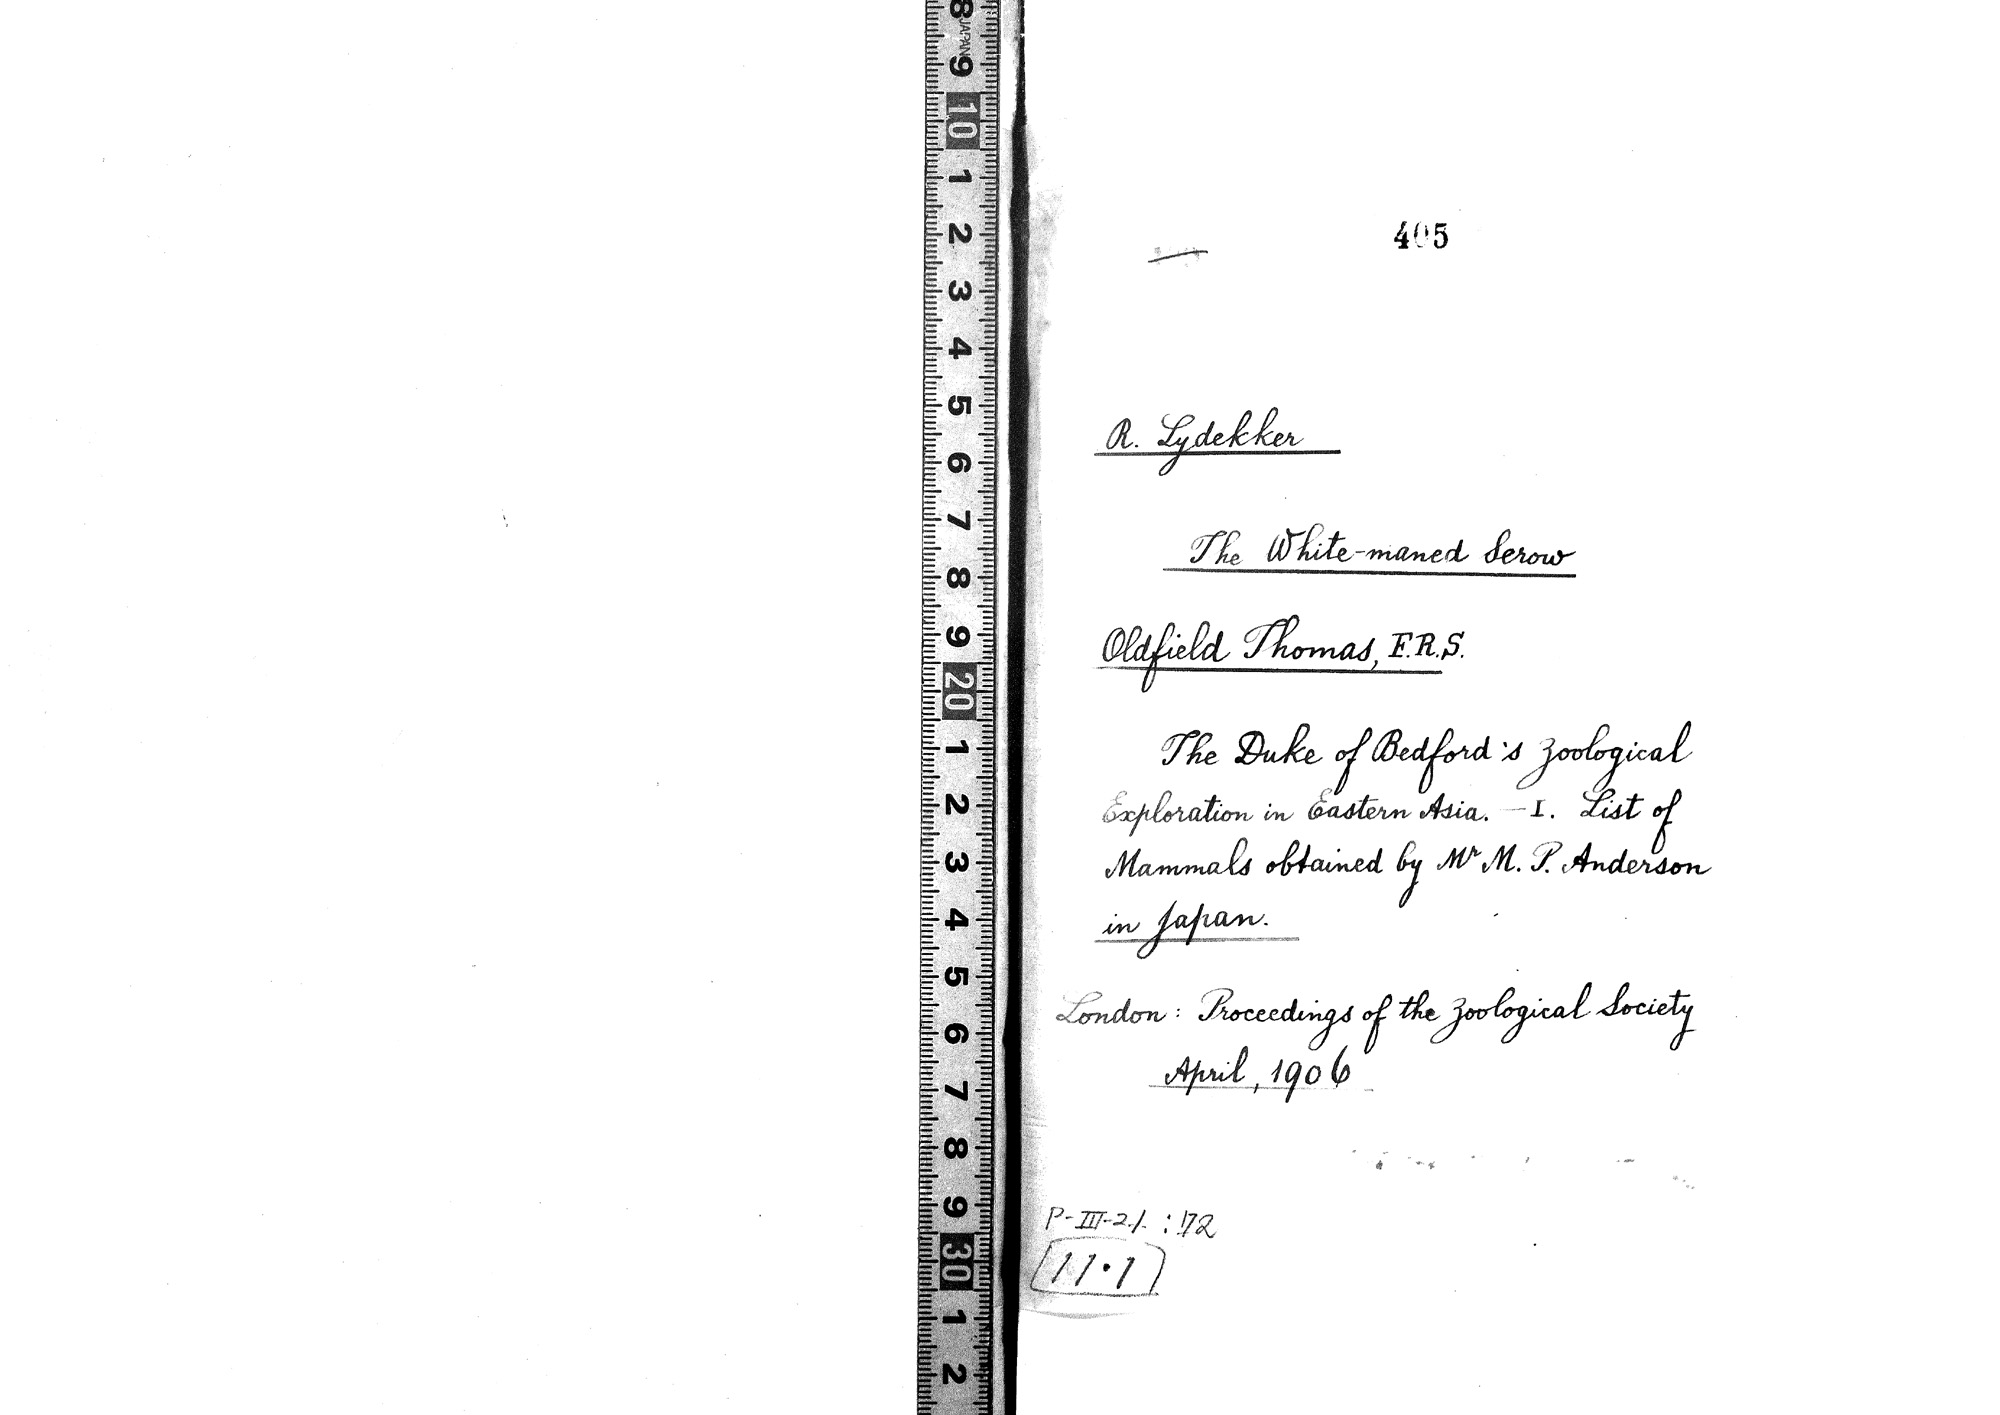 8
JAPAN
9
10
1
2
3
4
5
6
7
8
9
20
1
2
3
4
5
6
7
8
9
30
1
2
405
R. Lydekker
The White-maned Serow
Oldfield Thomas, F.R.S.
The Duke of Bedford's Zoological
Exploration in Eastern Asia. — I. List of
Mammals obtained by Mr M. P. Anderson
in Japan.
London: Proceedings of the Zoological Society
April, 1906
P-III-21. : 72
11.1